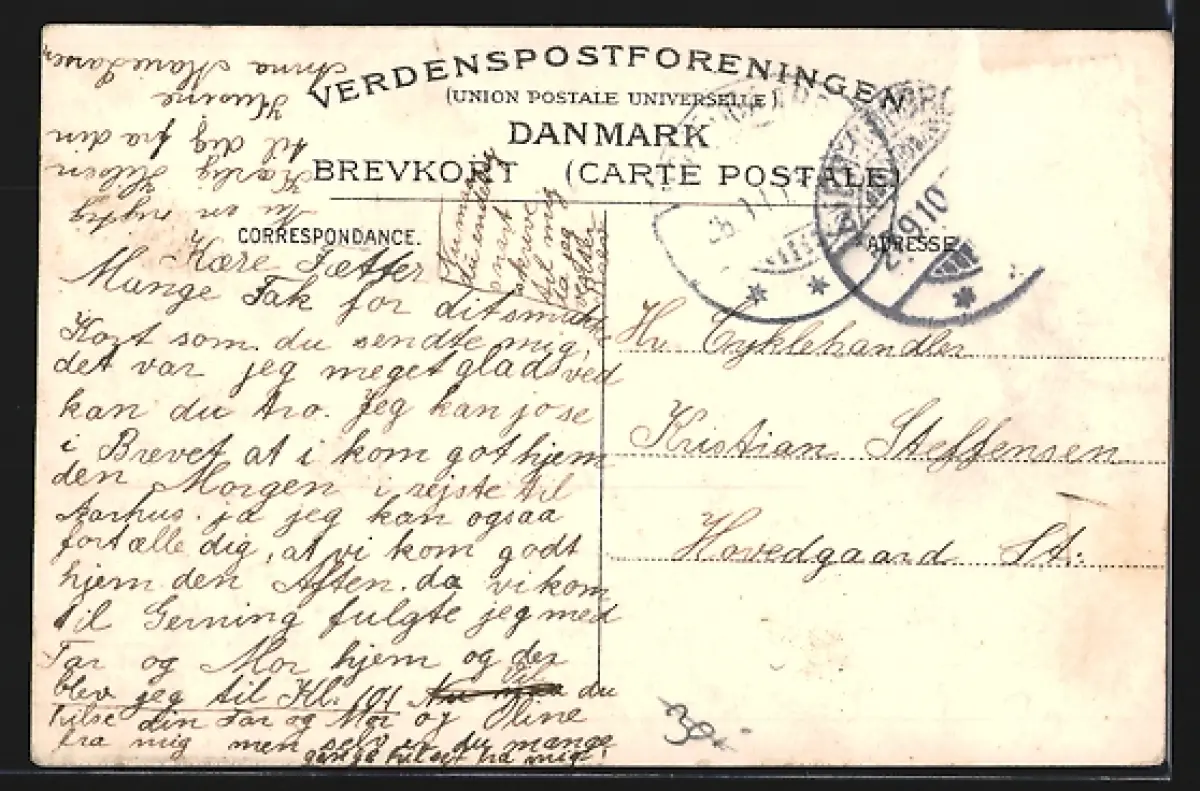 VERDENSPOSTFORENINGEN
(UNION POSTALE UNIVERSELLE).
DANMARK
BREVKORT (CARTE POSTALE)
CORRESPONDANCE.
ADRESSE
Kære Fætter
Mange Tak for dit smukke
Kort som du sendte mig,
det var jeg meget glad ved
kan du tro. Jeg kan jo se
i Brevet at i kom got hjem
den Morgen i rejste til
Aarhus. ja jeg kan ogsaa
fortælle dig, at vi kom godt
hjem den Aften. da vi kom
til Gerning fulgte jeg med
Far og Mor hjem og der
blev jeg til Kl. 101 du
hilse din Far og Mor og Oline
fra mig men selv er du mange
gange hilset fra mig
Nu maa
du endelig
snart
skrive
til mig
da jeg
Nu en rigtig
Kærlig Hilsen
til dig fra din
Kusine
Anna Marie Larsen
Hr. Cyklehandler
Kristian Steffensen
Hovedgaard St:
9.10
30.-